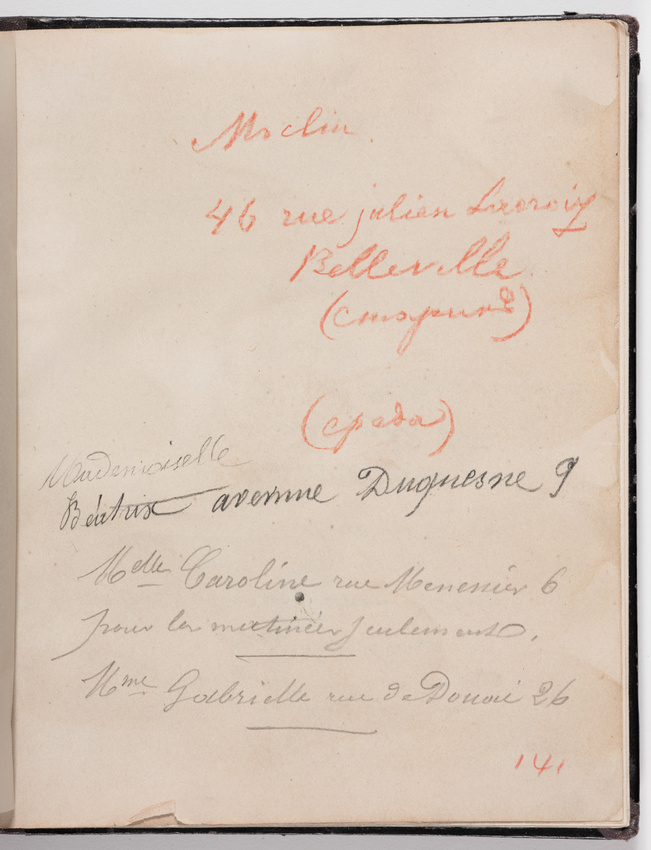 Moclin.
46 rue julien Lacroix
Belleville
(
(cpada)
Mademoiselle
Béatrix avennue Duquesne 9
Melle Caroline rue Menessier 6
pour les matinées seulement.
Mme Gabrielle rue de Douai 26
141